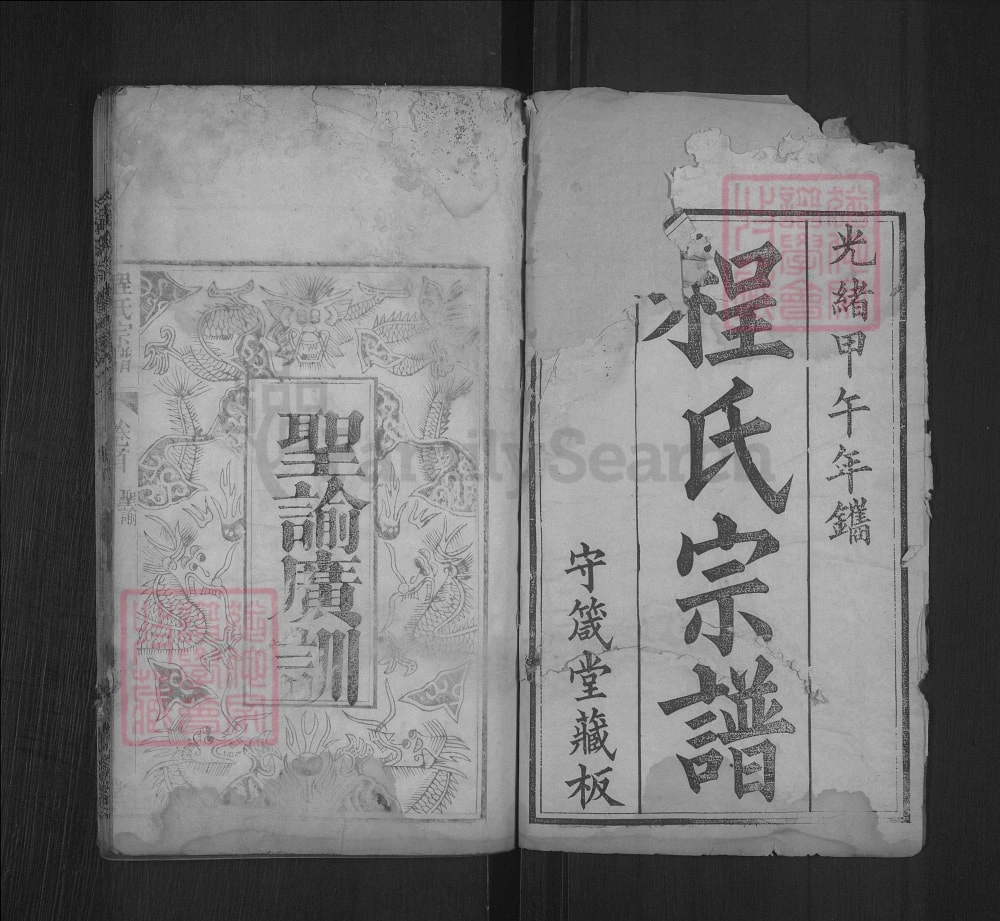 光緒甲午年鐫
程氏宗譜
守箴堂藏板
聖諭廣訓
程氏宗譜
聖諭
FamilySearch